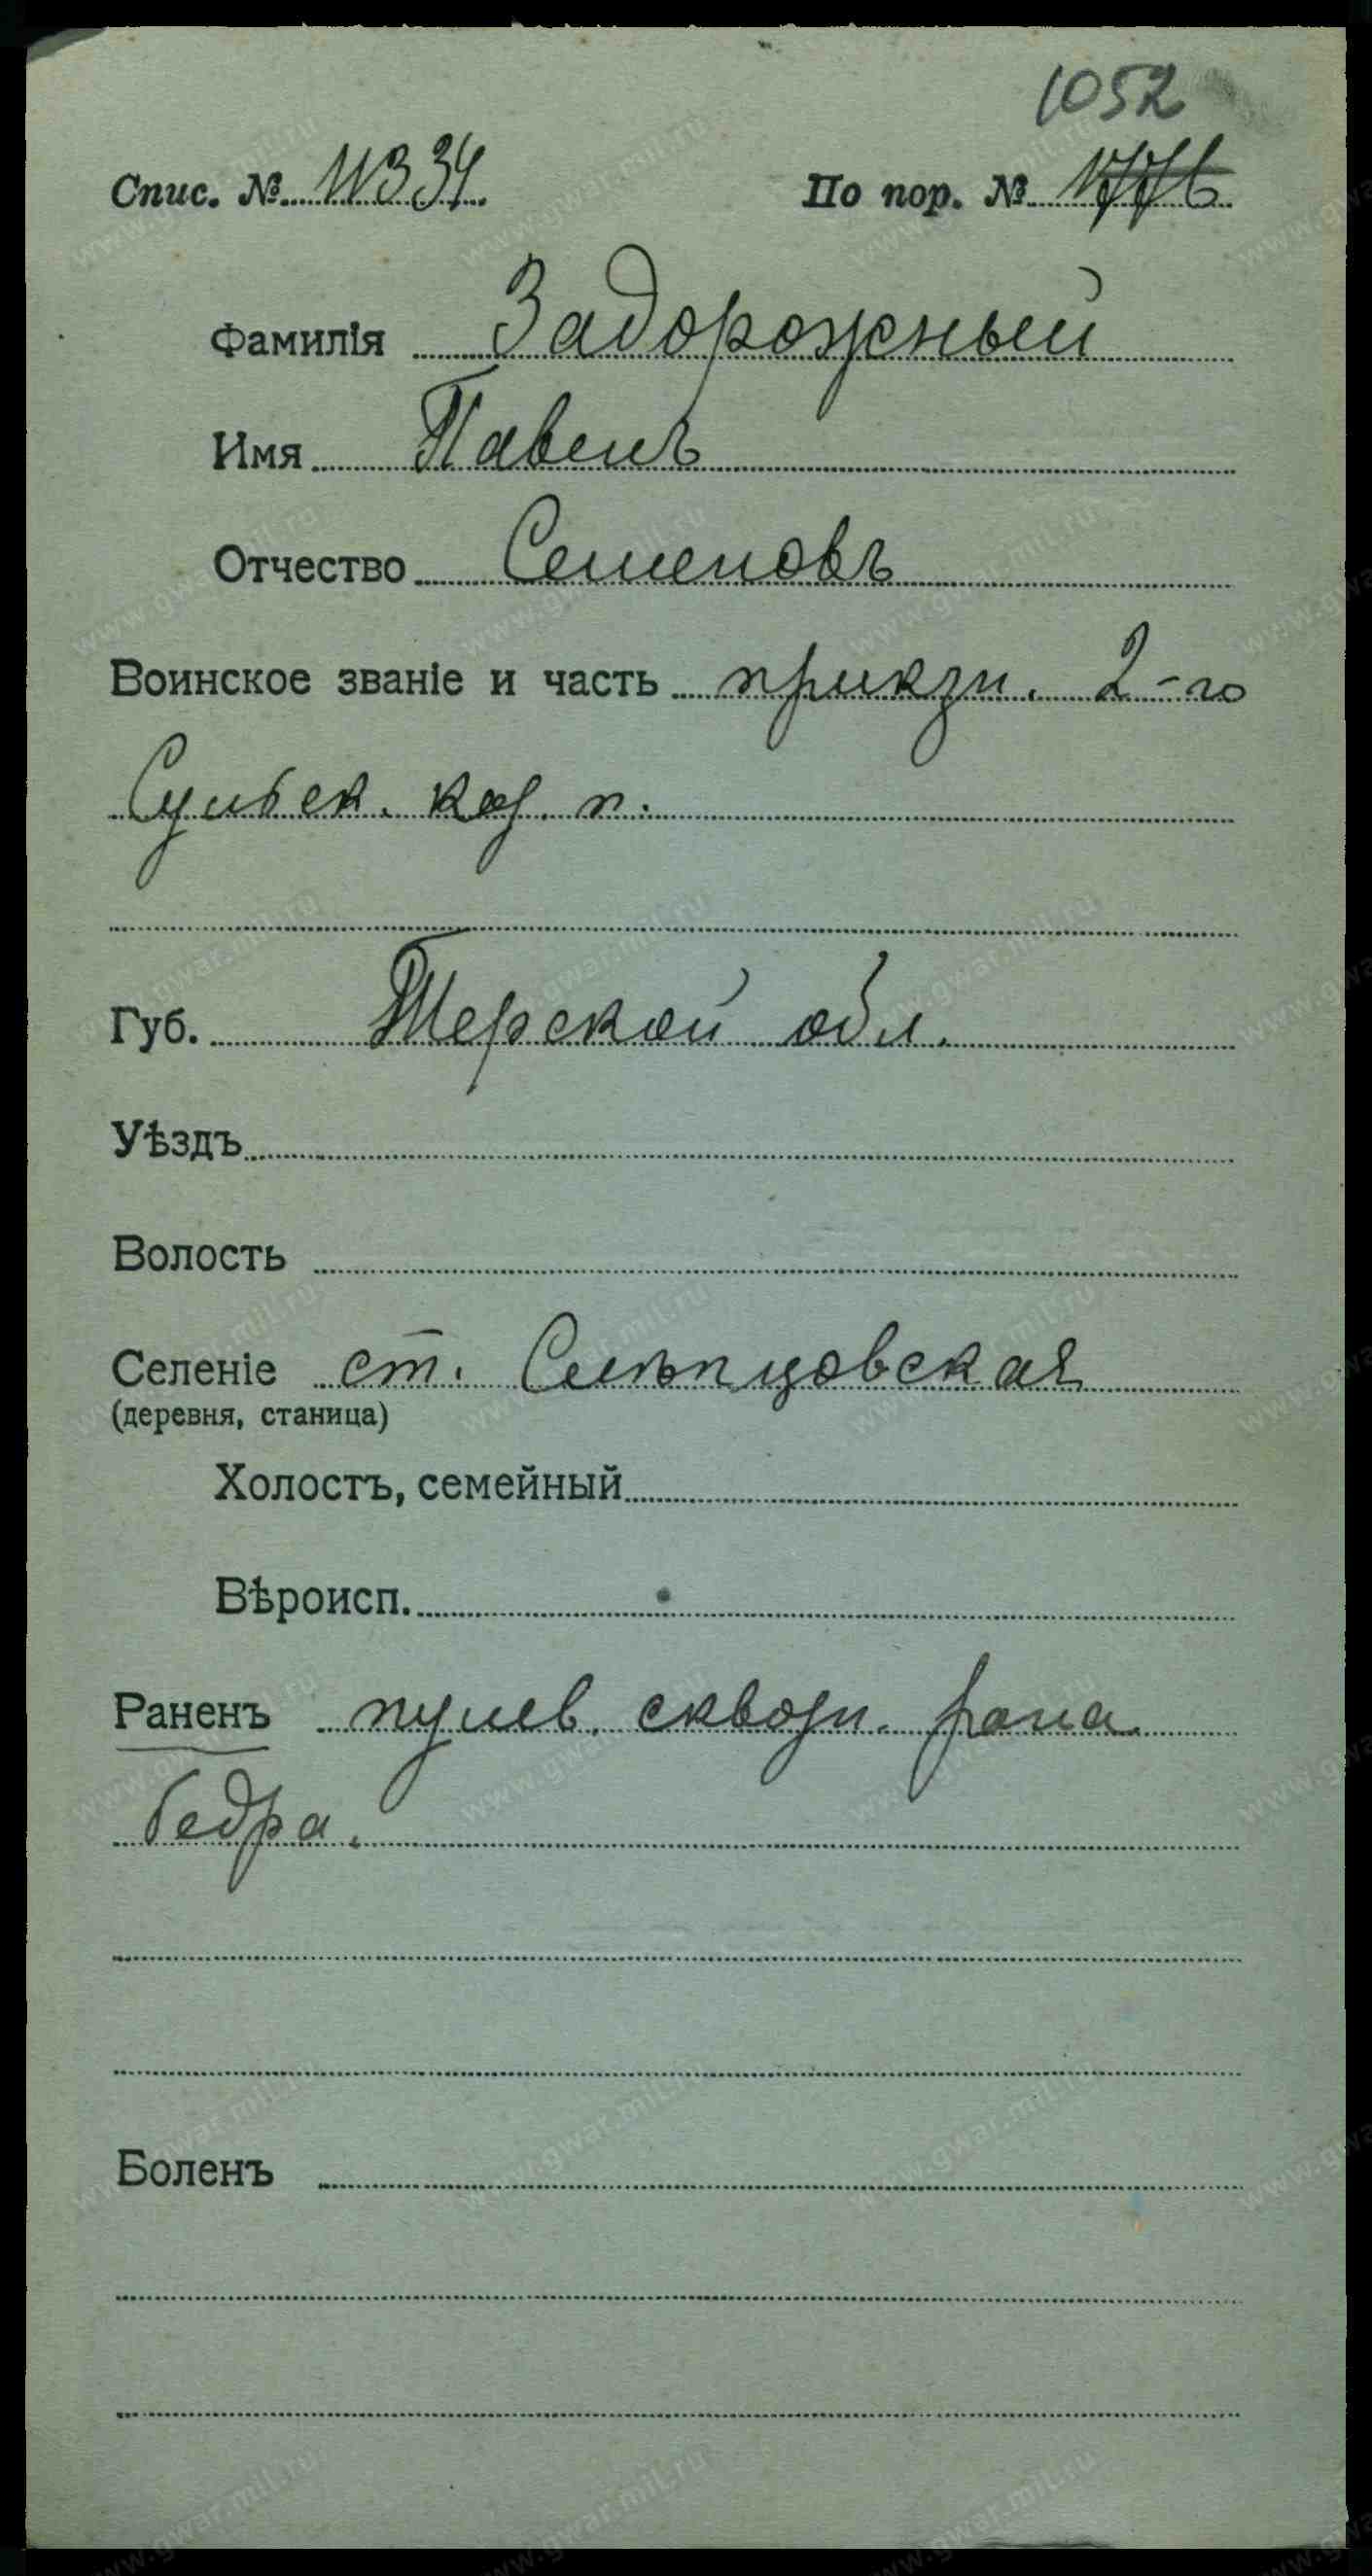 1052
Спис. № 11334 По пор. №
Фамилія Задорожный
Имя Павелъ
Отчество Семеновъ
Воинское званіе и часть приказн. 2-го
каз. п.
Губ. Терской обл.
Уѣздъ
Волость
Селеніе ст. Слѣпцовская
(деревня, станица)
Холостъ, семейный
Вѣроисп.
Раненъ пулев. сквозн. рана
бедра.
Боленъ